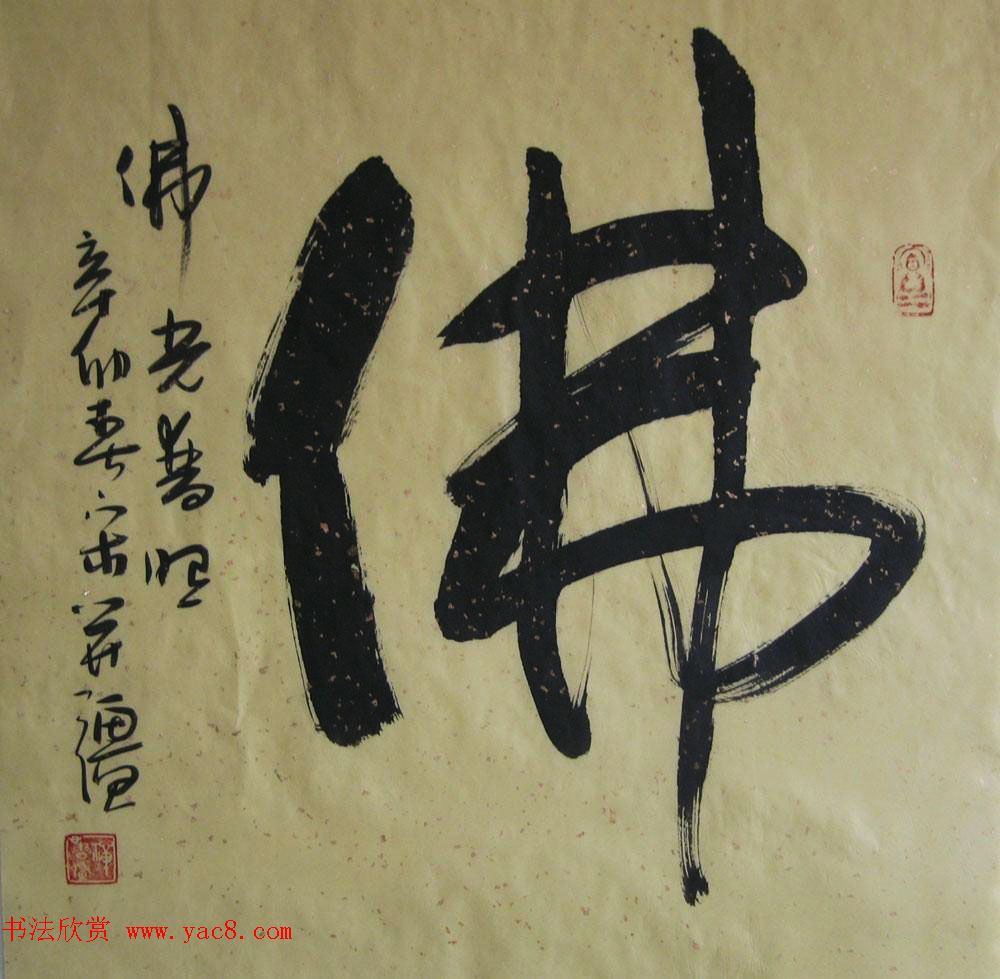 佛
佛光普照
辛卯春宋
书法欣赏 www.yac8.com